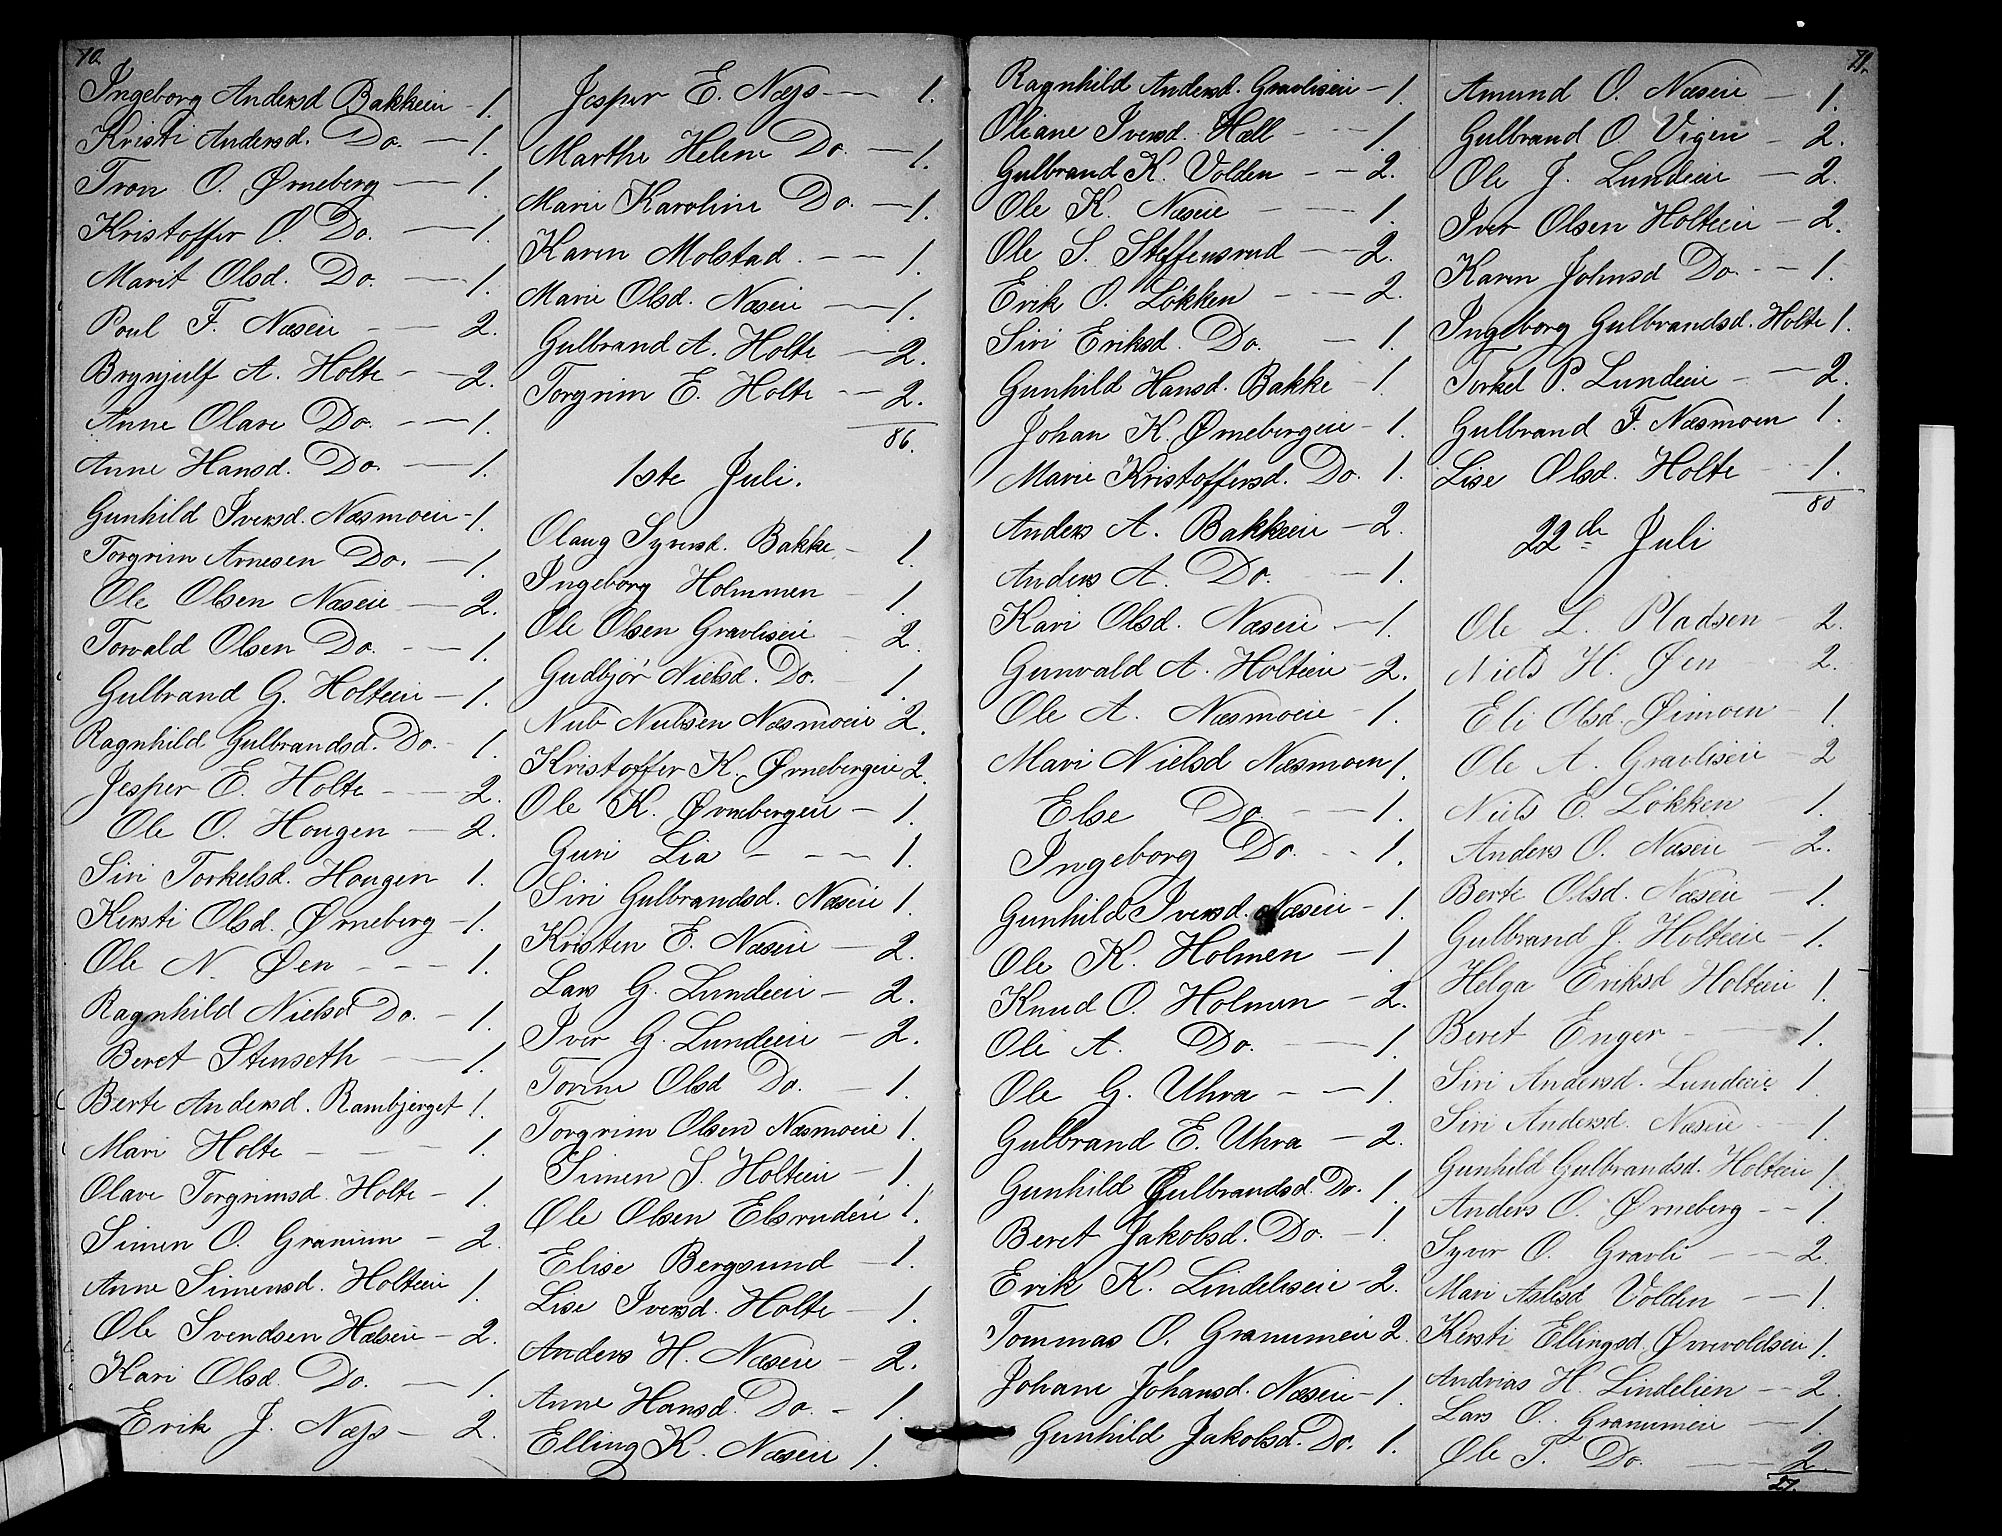 70.
Ingeborg Andersd Bakkeie - 1.
Kristi Andersd. Do. - 1.
Tron O. Ørneberg - 1.
Kristoffer O. Do. - 1.
Marit Olsd. Do. - 1.
Poul F. Næseie - 2.
Brynjulf A. Holte - 2.
Anne Olave Do. - 1.
Anne Hansd. Do. - 1.
Gunhild Iversd. Næsmoeie - 1.
Torgrim Arnesen Do. - 1.
Ole Olsen Næseie - 2.
Torvald Olsen Do. - 1.
Gulbrand G. Holteeie - 1.
Ragnhild Gulbrandsd. Do. - 1.
Jesper E. Holte - 2.
Ole O. Hougen - 2.
Siri Torkelsd. Hougen 1.
Kersti Olsd. Ørneberg - 1.
Ole N. Øen - 1.
Ragnhild Nielsd Do. - 1.
Beret Stenseth - 1.
Berte Andersd. Rambjerget 1.
Mari Holte - 1.
Olave Torgrimsd. Holte - 1.
Simen O. Granum - 2.
Anne Simensd. Holteeie 1.
Ole Svendsen Hælseie - 2.
Kari Olsd. Do. - 1.
Erik J. Næss - 2.
Jesper E. Næss - 1.
Marthe Helene Do. - 1.
Marie Karoline Do. - 1.
Karen Molstad. - 1.
Marie Olsd. Næseie - 1.
Gulbrand A. Holte - 2.
Torgrim E. Holte - 2.
86.
1ste Juli.
Olaug Syversd. Bakke - 1.
Ingeborg Holmmen - 1.
Ole Olsen Gravliseie 2.
Gudbjør Nielsd. Do. 1.
Nub Nubsen Næsmoeie 2.
Kristoffer K. Ørnebergeie 2.
Ole K. Ørnebergeie - 1.
Guri Lia - 1.
Siri Gulbrandsd. Næseie 1.
Kristen E. Næseie - 2.
Lars G. Lundeeie - 2.
Iver G. Lundeeie - 2.
Torine Olsd Do. - 1.
Torgrim Olsen Næsmoeie 1.
Simen S. Holteeie - 1.
Ole Olsen Elsrudeie 1.
Elise Bergsund - 1.
Lise Iversd. Holte - 1.
Anders H. Næseie - 2.
Anne Hansd. Do. - 1.
Elling K. Næseie 1.
Ragnhild Andersd. Gravliseie - 1.
Oliane Iversd. Hæll - 1.
Gulbrand K. Volden - 2.
Ole K. Næseie - 1.
Ole S. Steffensrud - 2.
Erik O. Løkken - 2.
Siri Eriksd. Do. - 1.
Gunhild Hansd. Bakke - 1.
Johan K. Ørnebergeie - 1.
Marie Kristoffersd. Do. 1.
Anders A. Bakkeeie - 2.
Anders A. Do. - 1.
Kari Olsd. Næseie - 1.
Gunvald A. Holteeie - 2.
Ole A. Næsmoeie - 1.
Mari Nielsd Næsmoen 1.
Else Do. - 1.
Ingeborg Do. - 1.
Gunhild Iversd. Næseie - 1.
Ole K. Holmen - 1.
Knud O. Holmen - 2.
Ole A. Do. - 1.
Ole G. Uhra - 1.
Gulbrand E. Uhra - 2.
Gunhild Gulbrandsd. Do. 1.
Beret Jakobsd. Do. - 1.
Erik K. Lindeliseie - 2.
Tommas O. Granumeie 2.
Johane Johansd. Næseie - 1.
Gunhild Jakobsd. Do. 1.
71.
Amund O. Næseie - 1.
Gulbrand O. Vigen - 2.
Ole J. Lundeeie - 2.
Iver Olsen Holteeie - 2.
Karen Johnsd Do. - 1.
Ingeborg Gulbrandsd. Holte 1.
Torkel P. Lundeeie - 2.
Gulbrand F. Næsmoen 1.
Lise Olsd. Holte - 1.
80
22de Juli
Ole L. Pladsen - 2.
Niels H. Øen 2.
Eli Olsd. Øimoen - 1.
Ole A. Gravliseie - 2
Niels E. Løkken - 1.
Anders O. Næseie - 2.
Berte Olsd. Næseie - 1.
Gulbrand J. Holteeie - 1.
Helga Eriksd Holteeie 1.
Beret Enger - 1.
Siri Andersd. Lundeeie 1.
Siri Andersd. Næseie 1.
Gunhild Gulbrandsd. Holteeie 1.
Anders O. Ørneberg - 1.
Syver O. Gravli - 2.
Mari Aslesd Volden - 1.
Kersti Ellingsd. Ørvoldseie 1.
Andreas H. Lindelien - 2.
Lars O. Granumeie - 1.
Ole T. Do. - 2.
27.